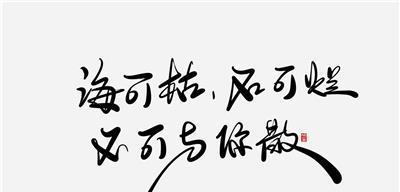 海可枯、石可烂
不可与你散